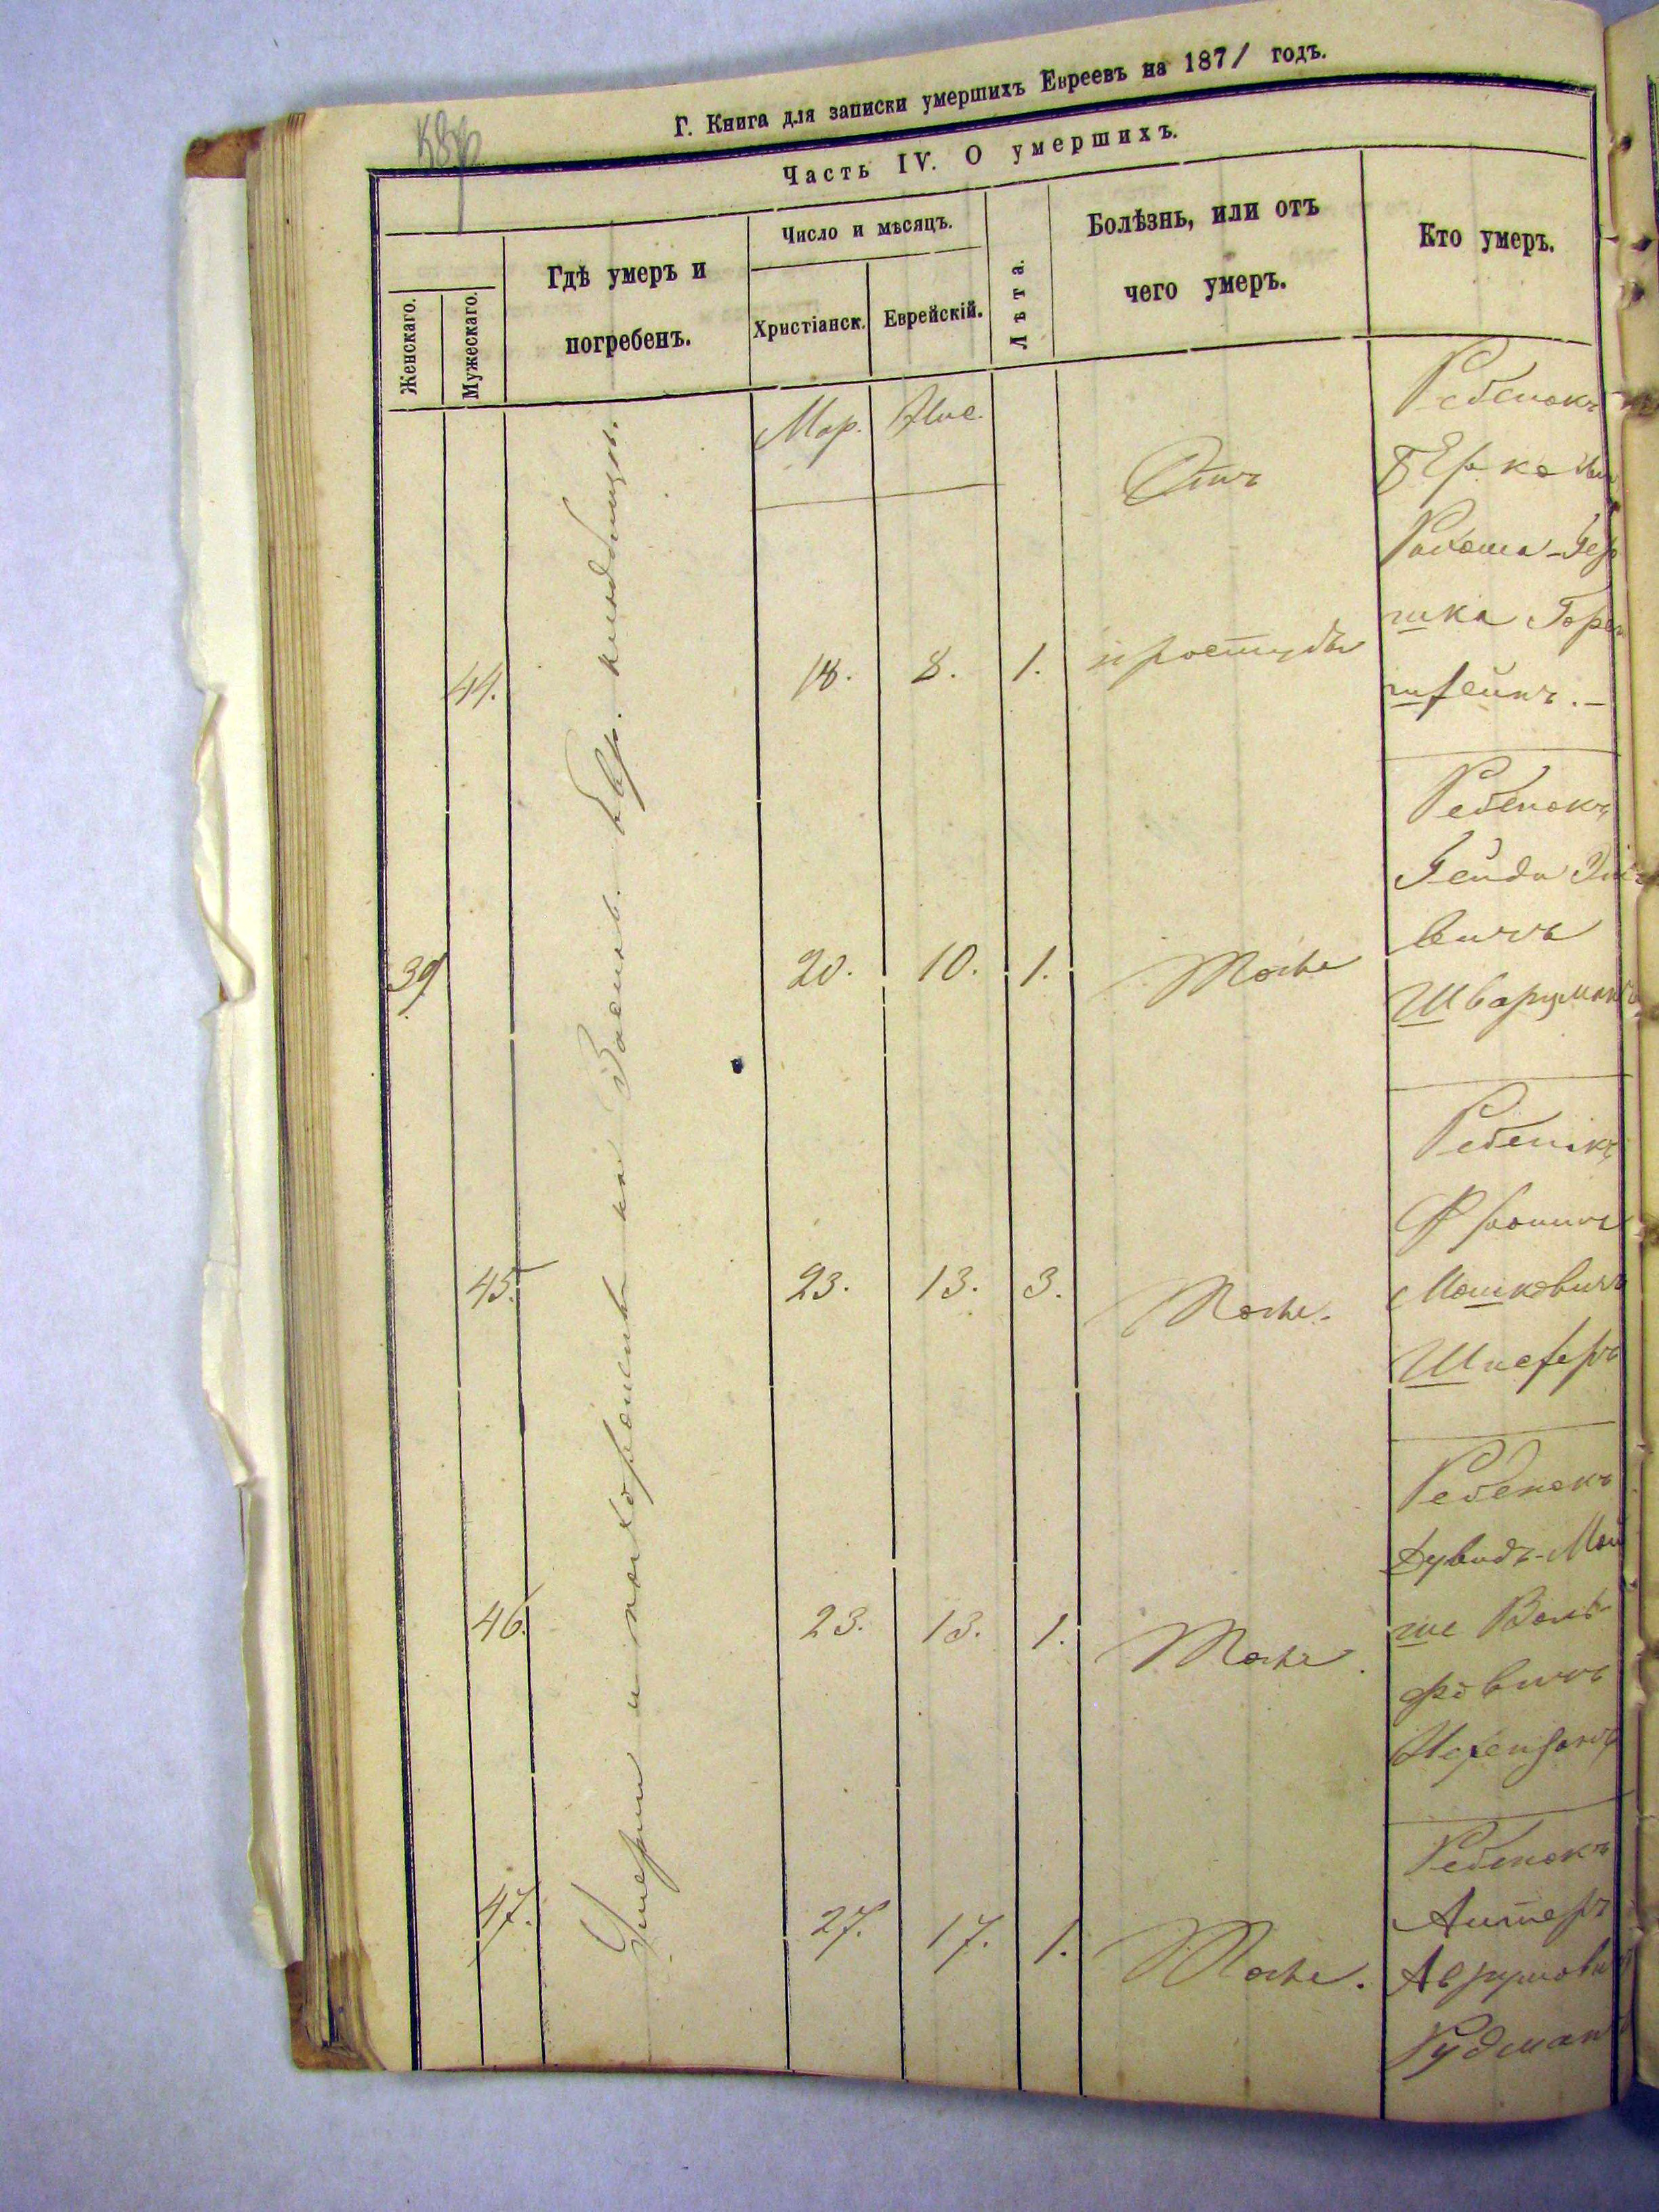 Г. Книга для записки умершихъ Евреевъ на 1871 годъ.
Часть IV. О умершихъ.
Женскаго.
Мужескаго.
Гдѣ умеръ и
погребенъ.
Число и мѣсяцъ.
Христіанск.
Еврейскій.
Лѣта.
Болѣзнь, или отъ
чего умеръ.
Кто умеръ.
Умерли и похоронены на Засл. Евр. кладбищѣ.
Мар.
Нис.
44.
18.
8.
1.
Отъ
простуды
Ребенокъ
Берко
шка Горен
штейнъ.-
39
20.
10.
1.
Тоже
Ребенокъ
Гейда
вичъ
Шварцманъ
45.
23.
13.
3.
Тоже.
Ребенокъ
Фроимъ
Мошковичъ
Шнеферъ
46.
23.
13.
1.
Тоже.
Ребенокъ
Дувидъ-Мой
ше Воль
фовичъ
47.
27.
17.
1.
Тоже.
Ребенокъ
Аврумови
Рудманъ